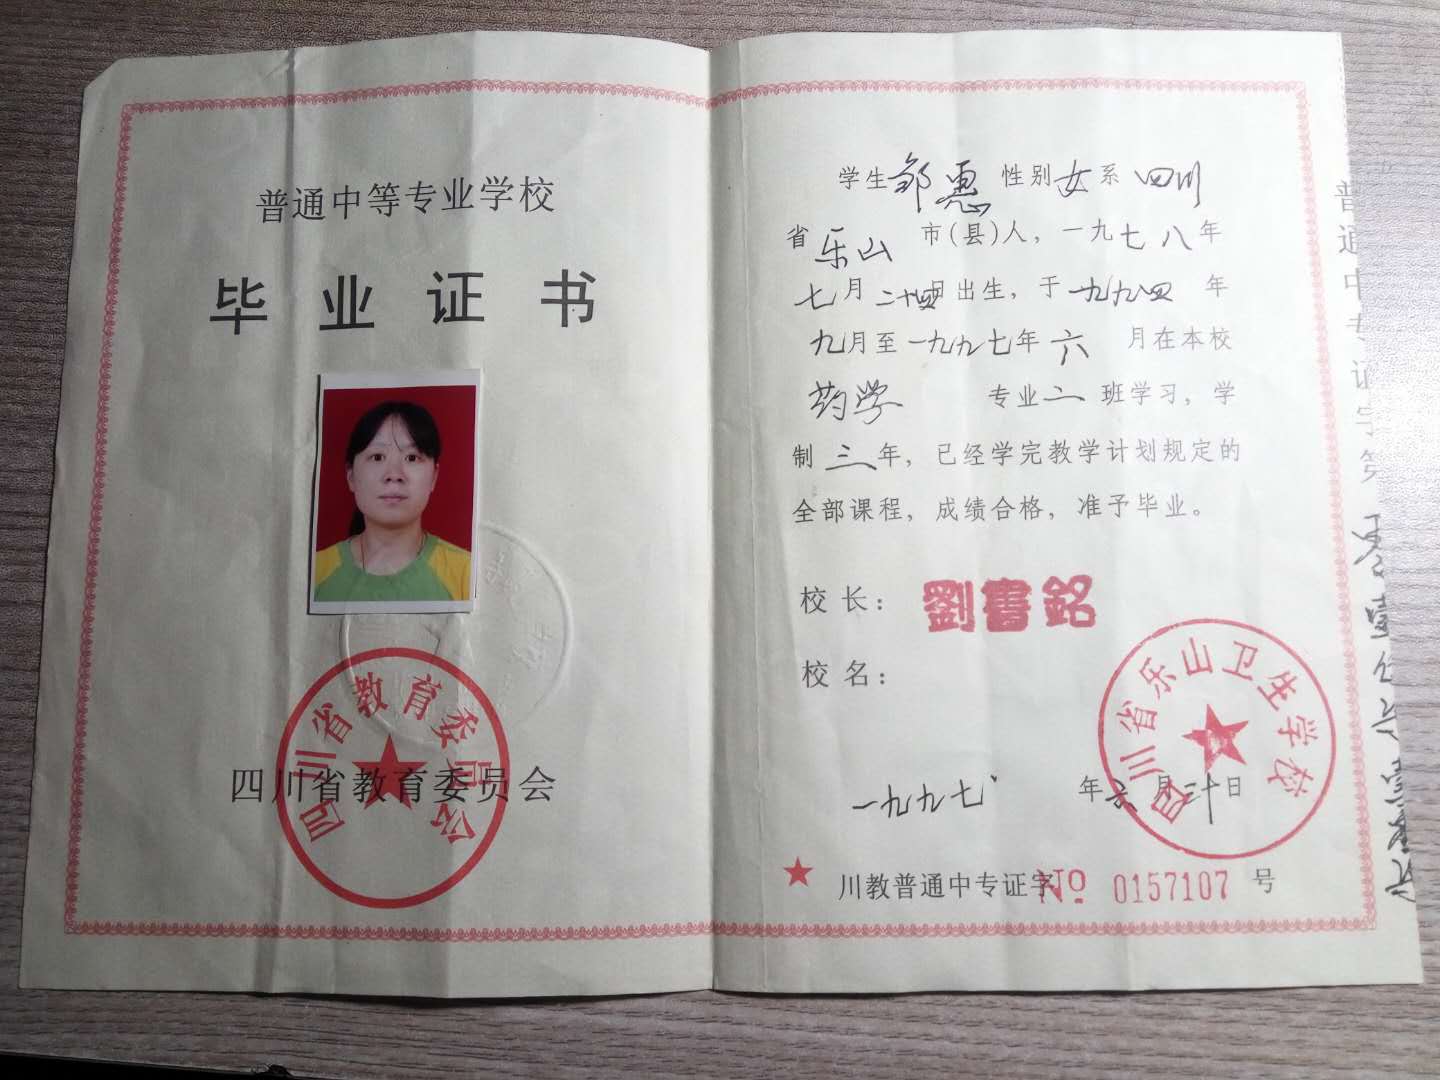 普通中等专业学校
毕业证书
四川省教育委员会
四川省教育委员会
学生邹惠性别女系四川
省乐山市(县)人，一九七八年
七月二十四日出生，于一九九四年
九月至一九九七年六月在本校
药学专业二班学习，学
制三年，已经学完教学计划规定的
全部课程，成绩合格，准予毕业。
校长：劉書銘
校名：
四川省乐山卫生学校
一九九七年六月三十日
川教普通中专证字No 0157107号
普通中专证字第